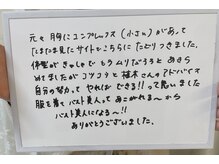 元々胸にコンプレックス(小さい)があって
たまたま見たサイトからこちらにたどりつきました。
体型がきゃしゃでもうムリだろうとあきら
めてましたがコツコツと植木さんのアドバイスで
自分の努力ってやればできる!!って思いました
服を着てバスト美人ってあこがれる〜から
バスト美人になる〜!!
ありがとうございました。